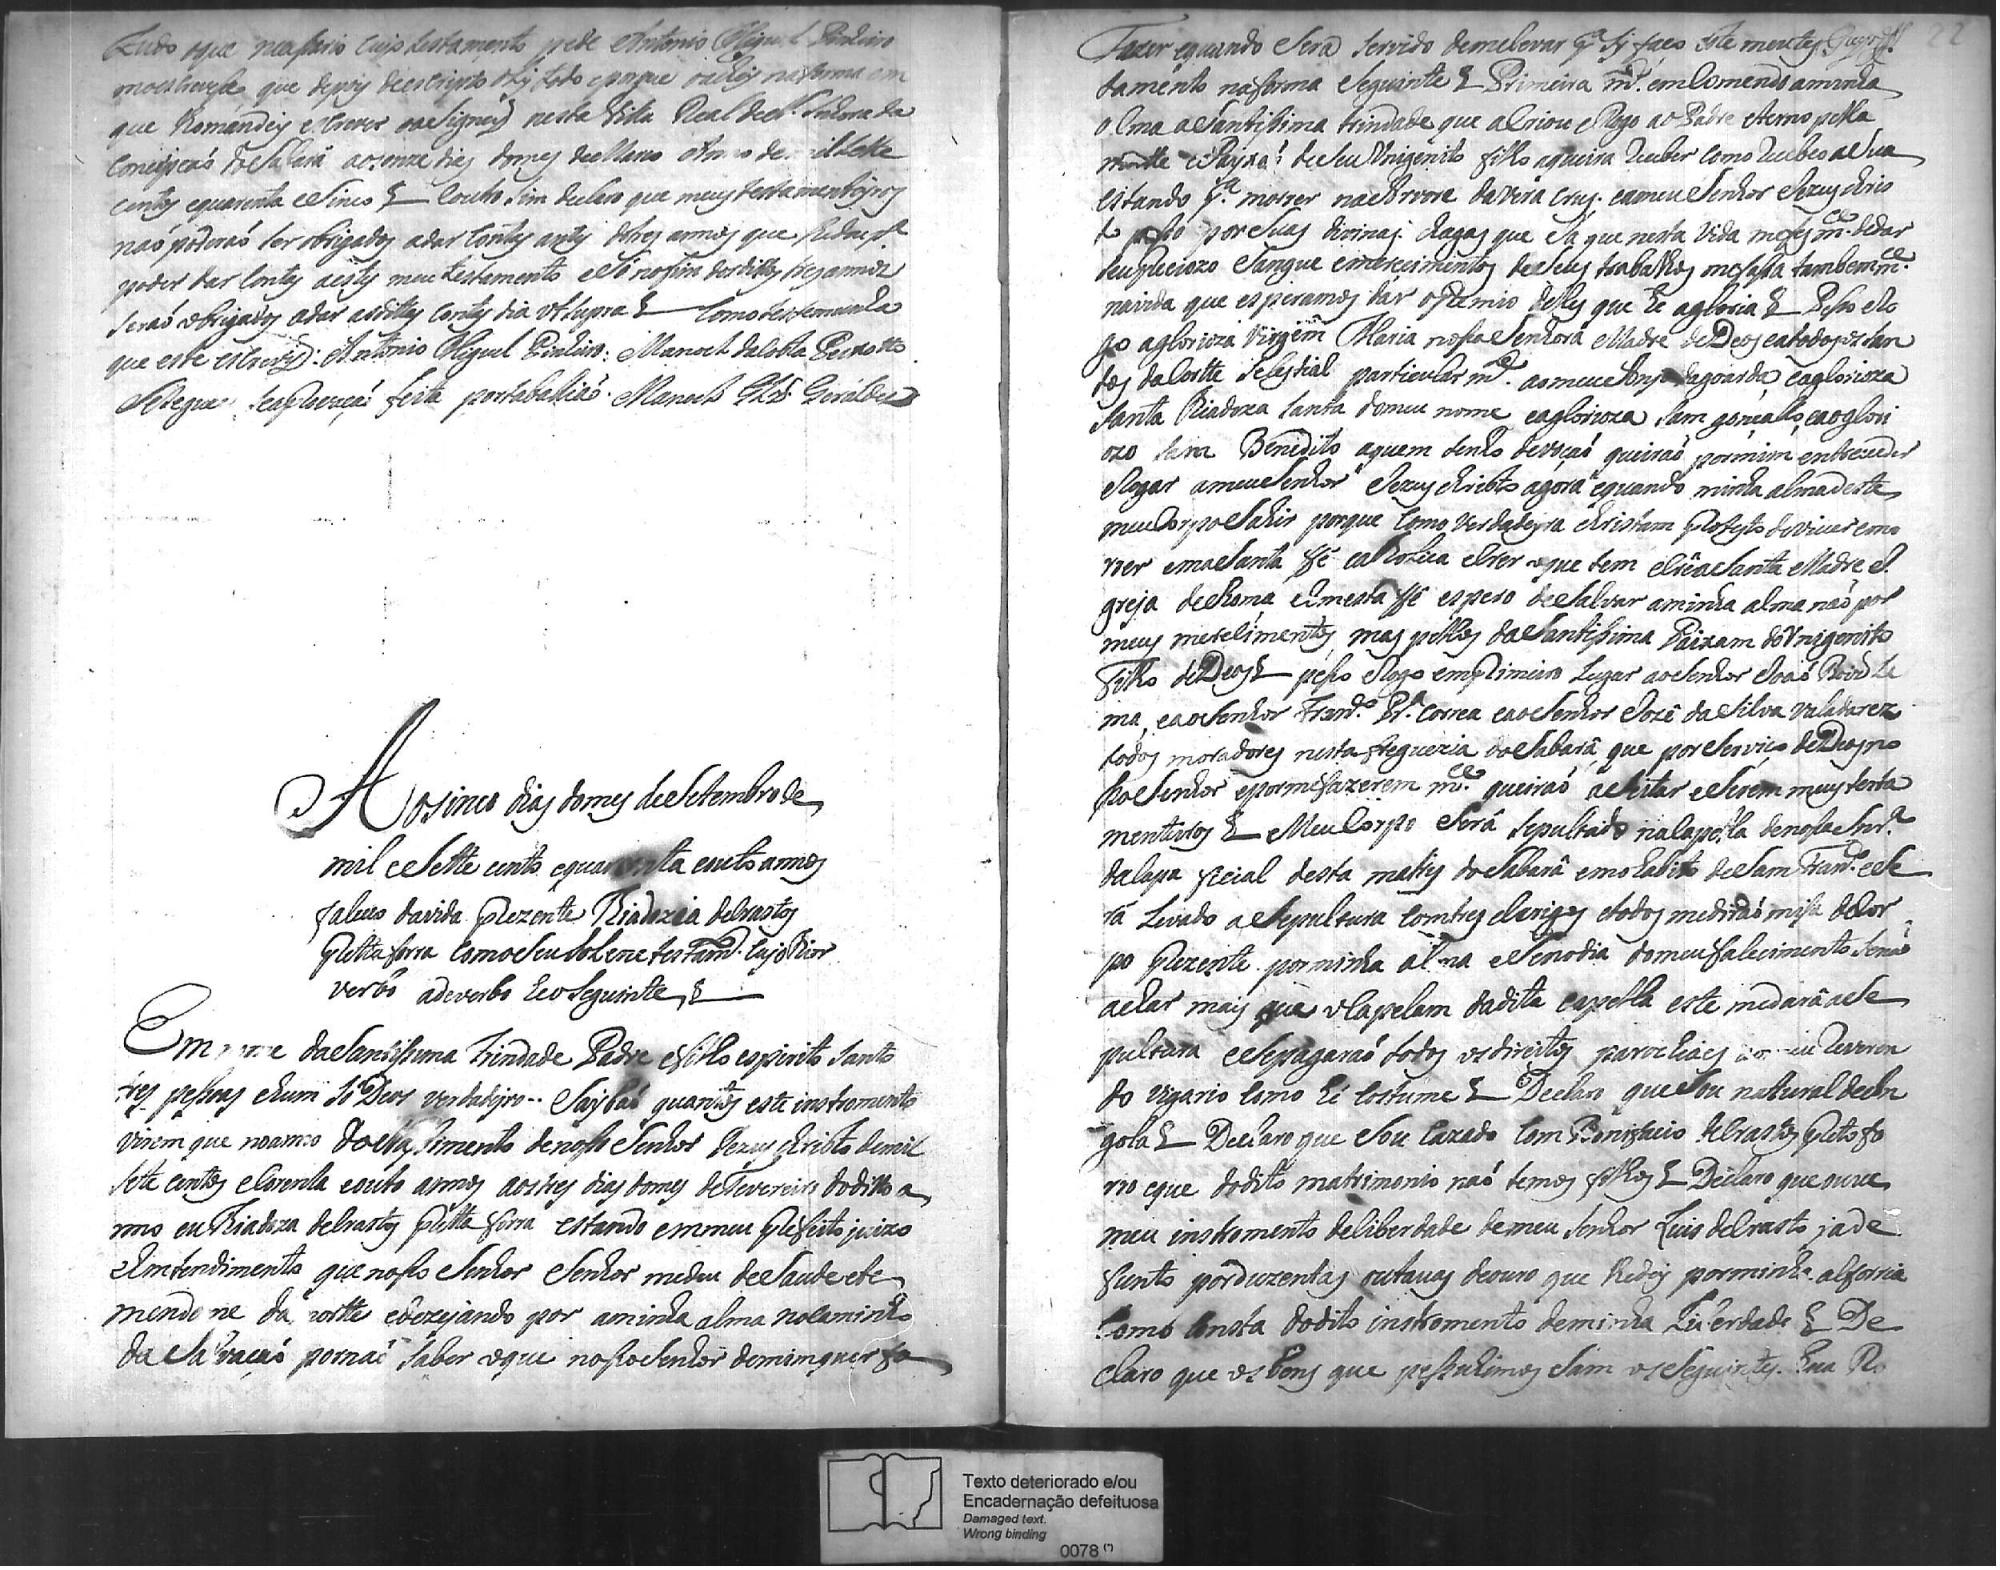 tudo o que nesesario cujo testamento pede Antonio Miguel Pinheiro
que depois de escripto o ly todo e porque o achey na forma em
que Ro mandey escrever o asigney nesta Villa Real de N. Senhora da
Conceiçaó do Sabará aos onze dias do mes de Marco Annos de mil sete
centos e quarenta e Sinco & Eoutro sim declaro que meus testamenteyros
naó poderaó ser obrigados a dar Contas antes de tres annos que
poder dar Contas a este meu testamento e Só no fim dos dittos tres annos
seraó obrigados a dar as dittas Contas dia vt supra & Como testemunha
que este escrevy: Antonio Miguel Pinheiro: Manoel da Costa Peixotto
Sesegue a aprovaçaó feita por tabaliaó. Manoel Giz Geraldes
Aosinco dias do mes de Setembro de
mil e Sette cento e quarenta e outo annos
faleceo da vida prezente Thiadozia de Crastos
pretta forra com o Seu Solene testamd. cujo thior
verbo ad everbo he o Seguinte &
Em nome da Santissima Trindade Padre e filho espirito Santo
tres pessoas e hum Só Deos verdadeyro.. Saybaó quantos este instromento
virem que no anno do Nassimento de nosso Senhor Jezus christo de mil
sete centos e Corenta e outo annos aos tres dias do mes de Fevereiro do ditto a
nno eu Thiadoza de Crastos pretta forra estando em meu prefeito juizo
e Emtendimento que nosso Senhor Senhor me deu de Saude e te
mendo me da morte e dezejando por a minha alma no Caminho
da Salvaçaó por naó saber o que nosso Senhor de mim quer fa
Fazer e quando Sera Servido de me levar p.ª Sy faço este meu tes
tamento na forma Seguinte & Primeira m.te emComendo a minha
Alma a Santissima trindade que a Criou e Rogo ao Padre eterno pella
morte e Payxaó de Seu Vnigenito filho a queira Receber como Recebeo a Sua
estando p.ª morrer na Arvore da vera Crus. e a meu Senhor Jezus chris
to pesso por Suas divinas Chagas que Já que nesta vida me fes m.ce de dar
Seu preciozo Sangue e merecimentos de Seus trabalhos me faça tambem m.ce
na vida que esperamos dar o premio delles que he a gloria & Peço e Ro
go a glorioza Virgem Maria nossa Senhora Madre de Deos e a todos os San
tos da Cortte Selestial particular m.te ao meu Anjo da goarda, e a glorioza
Santa Thiadoza Santa do meu nome e a glorioza Sam gonçallo, e ao glori
ozo Sam Benedito a quem tenho devoçaó queiraó por mim entreceder
e Rogar a meu Senhor Jezus christo agora e quando minha alma deste
meu Corpo Sahir porque Como verdadeyra christam protesto de viver e mo
rrer em a Santa fé catholica e Crer o que tem e Crê a Santa Madre I
greja de Roma e Em esta fé espero de Salvar a minha alma naó por
meus merecimentos mas pellos da Santissima Paixam do Vnigenito
Filho de Deos & pesso e Rogo em primeiro Lugar ao Senhor Joaó
ma, e ao Senhor Fran.co Pr.ª Correa e ao Senhor José da Silva Valadarez
todos moradores nesta freguezia do Sabará, que por Serviço de Deos no
sso Senhor e por me fazerem m.ce queiraó aSeitar e Serem meus testa
menteiros & Meu Corpo Será Sepultado na Capella de nossa Snr.ª
da Lapa filial desta matris do Sabará em o habito de Sam Fran.co e Se
rá Levado a Sepultura Com tres clerigos e todos me diraó missa de Cor
po prezente por minha alma e Se no dia do meu falecimento Se naó
achar mais que o Capelam da dita capella este me dará a Se
pultura e Se pagaraó todos os direitos parochiaes ao meu Reveren
do vigario Como he Costume & Declaro que Sou natural de An
gola & Declaro que Sou Cazada Com Bonifacio de Crastos preto fo
rro e que do dito matrimonio naó temos filhos & Declaro que ouve
meu instromento de liberdade de meu Senhor Luis de Crasto ja de
funto por duzentas outavas de ouro que lhe dey por minha alforria
Como Consta do dito instromento de minha Liberdade & De
claro que os bens que pessuhimos Sam os Seguintes. hua Ro
22
Texto deteriorado e/ou
Encadernação defeituosa
Damaged text.
Wrong binding
0078 (*)